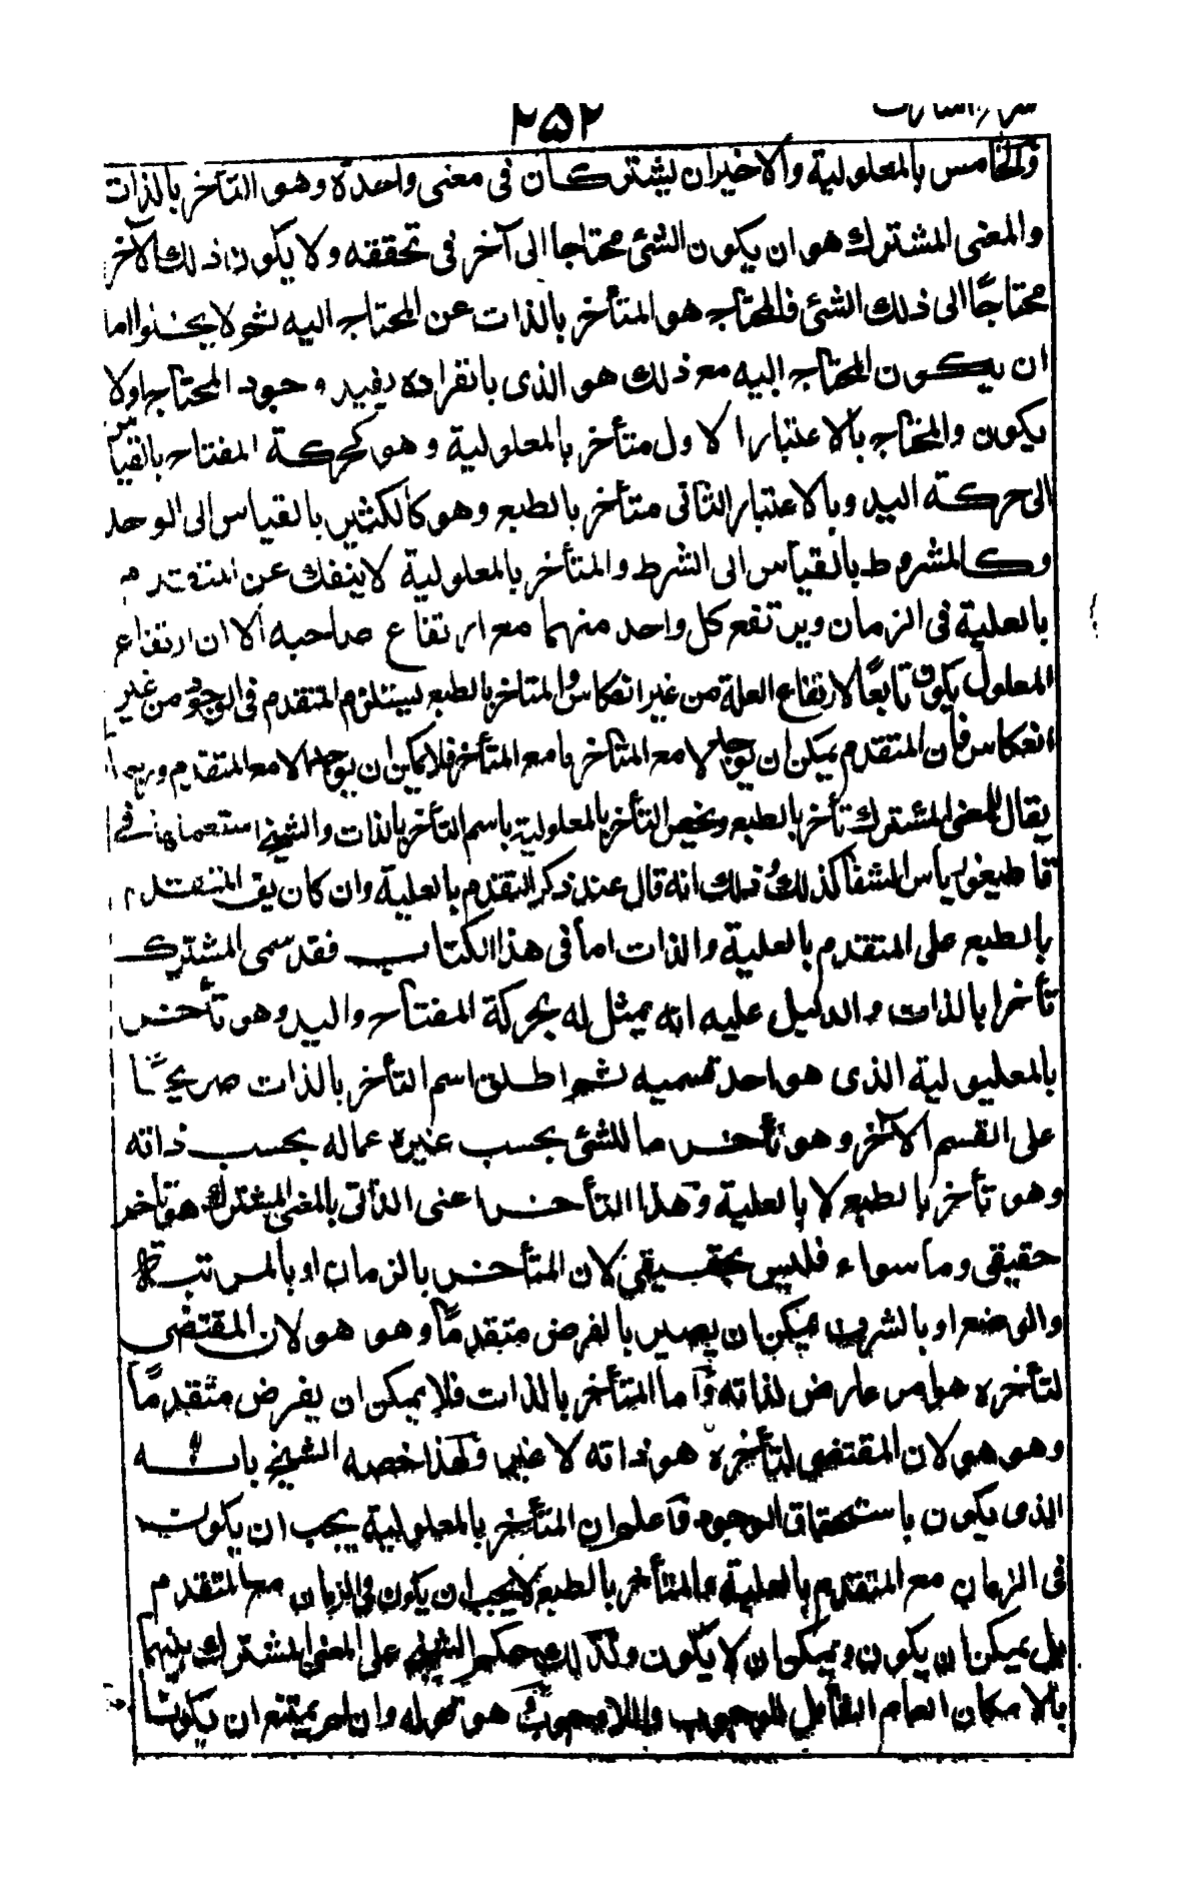 ٢٥٢
والخامس بالمعلولية والاخيران يشتركان فى معنى واحدة وهو التأخر بالذات
والمعنى المشترك هو ان يكون الشئ محتاجا الى آخر فى تحققه ولا يكون ذلك الآخر
محتاجًا الى ذلك الشئ فالمحتاج هو المتأخر بالذات عن المحتاج اليه ثم لا يخلوا اما
ان يكون المحتاج اليه مع ذلك هو الذى بانفراده يفيد وجود المحتاج اولا
يكون والمحتاج بالاعتبار الاول متأخر بالمعلولية وهو كحركة المفتاح بالقياس
الى حركة اليد وبالاعتبار الثانى متأخر بالطبع وهو كالكثير بالقياس الى الوحد
وكالمشروط بالقياس الى الشرط والمتأخر بالمعلولية لا ينفك عن المتقدم
بالعلية فى الزمان ويرتفع كل واحد منهما مع ارتفاع صاحبه الا ان ارتفاع
المعلول يكون تابعًا لارتفاع العلة من غير انعكاس والمتاخر بالطبع يستلزم المتقدم فى الوجود من غير
انعكاس فان المتقدم يمكن ان يوجد لا مع المتأخر واما المتأخر فلا يمكن ان يوجد الا مع المتقدم وربما
يقال للمعنى المشترك تأخر بالطبع ويخص التأخر بالمعلولية باسم التأخر بالذات والشيخ استعملها فى
قاطيغورياس الشفا كذلك وذلك انه قال عند ذكر التقدم بالعلية وان كان يق المتقدم
بالطبع على المتقدم بالعلية والذات اما فى هذا الكتاب فقد سمى المشترك
تأخرا بالذات والدليل عليه انه يمثل له بحركة المفتاح واليد وهو تأخر
بالمعلولية الذى هو احد قسميه ثم اطلق اسم التأخر بالذات صريحًا
على القسم الآخر وهو تأخر ما للشئ بحسب غيره عما له بحسب ذاته
وهو تأخر بالطبع لا بالعلية وهذا التأخر اعنى الذاتى بالمعنى المشترك هو تاخر
حقيقى وما سواه فليس بحقيقى لان المتأخر بالزمان او بالمرتبة
والوضع او بالشرف يمكن ان يصير بالفرض متقدمًا وهو هو لان المقتضى
لتأخره هو امر عارض لذاته وأما المتأخر بالذات فلا يمكن ان يفرض متقدمًا
وهو هو لان المقتضى لتأخره هو ذاته لا غير ولهذا خصه الشيخ بانه
الذى يكون باستحقاق الوجود واعلم ان المتأخر بالمعلولية يجب ان يكون
فى الزمان مع المتقدم بالعلية والمتأخر بالطبع لا يجب ان يكون فى الزمان مع المتقدم
بل يمكن ان يكون ويمكن ان لا يكون ولذلك حكم الشيخ على المعنى المشترك بينهما
بالامكان العام الشامل للوجوب واللاوجوب هو قوله وان لم يمتنع ان يكونا